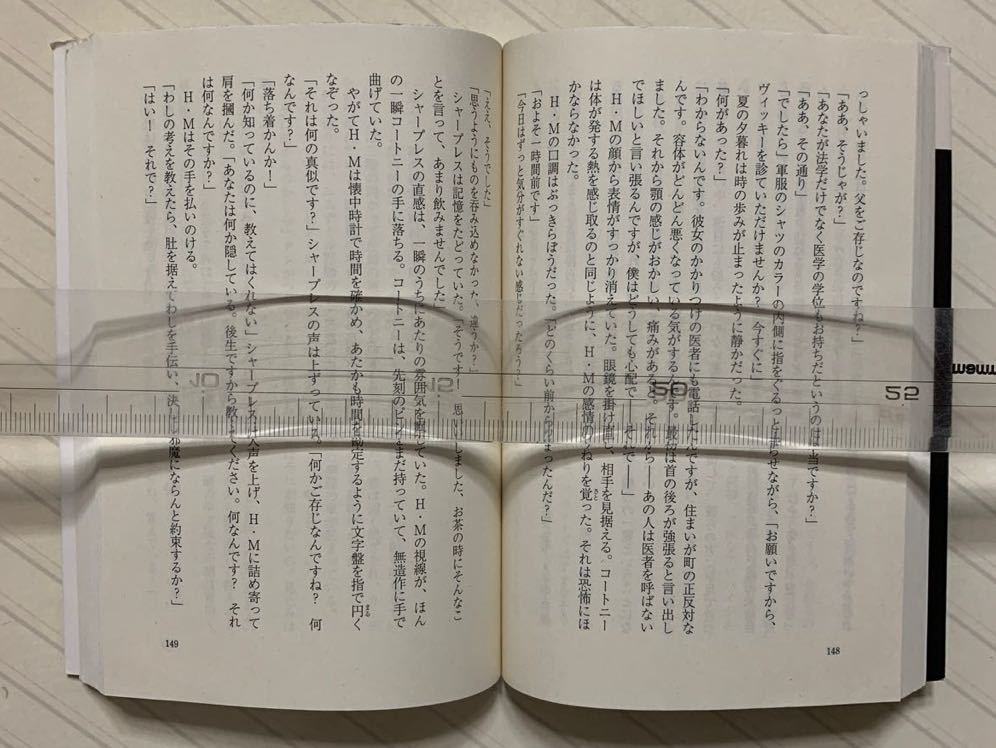 っしゃいました。父をご存じなのですね？」
「ああ、そうじゃが？」
「あなたが法学だけでなく医学の学位もお持ちだというのは本当ですか？」
「ああ、その通り」
「でしたら」軍服のシャツのカラーの内側に指をぐるっと走らせながら、「お願いですから、
ヴィッキーを診ていただけませんか？　今すぐに」
夏の夕暮れは時の歩みが止まったように静かだった。
「何があった？」
「わからないんです。彼女のかかりつけの医者にも電話したんですが、住まいが町の正反対な
んです。容体がどんどん悪くなっている気がするんです。最初は首の後ろが強張ると言い出し
ました。それから顎の感じがおかしい、痛みがあると。それから――あの人は医者を呼ばない
でほしいと言い張るんですが、僕はどうしても心配で――それで――」
H・Mの顔から表情がすっかり消えていた。眼鏡を掛け直し、相手を見据える。コートニー
は体が発する熱を感じ取るのと同じように、H・Mの感情のうねりを覚った。それは恐怖にほ
かならなかった。
H・Mの口調はぶっきらぼうだった。「どのくらい前から始まったんだ？」
「およそ一時間前です」
「今日はずっと気分がすぐれない感じだったろう？」
148
「ええ、そうでした」
「思うようにものを呑み込めなかった、違うか？」
シャープレスは記憶をたどっていた。「そうです！　思い出しました、お茶の時にそんなこ
とを言って、あまり飲みませんでした」
シャープレスの直感は、一瞬のうちにあたりの雰囲気を察していた。H・Mの視線が、ほん
の一瞬コートニーの手に落ちる。コートニーは、先刻のピンをまだ持っていて、無造作に手で
曲げていた。
やがてH・Mは懐中時計で時間を確かめ、あたかも時間を勘定するように文字盤を指で円く
なぞった。
「それは何の真似です？」シャープレスの声は上ずっている。「何かご存じなんですね？　何
なんです？」
「落ち着かんか！」
「何か知っているのに、教えてはくれない」シャープレスは大声を上げ、H・Mに詰め寄って
肩を摑んだ。「あなたは何か隠している。後生ですから教えてください。何なんです？　それ
は何なんですか？」
H・Mはその手を払いのける。
「わしの考えを教えたら、肚を据えてわしを手伝い、決して邪魔にならんと約束するか？」
「はい！　それで？」
149
10
12
50
52